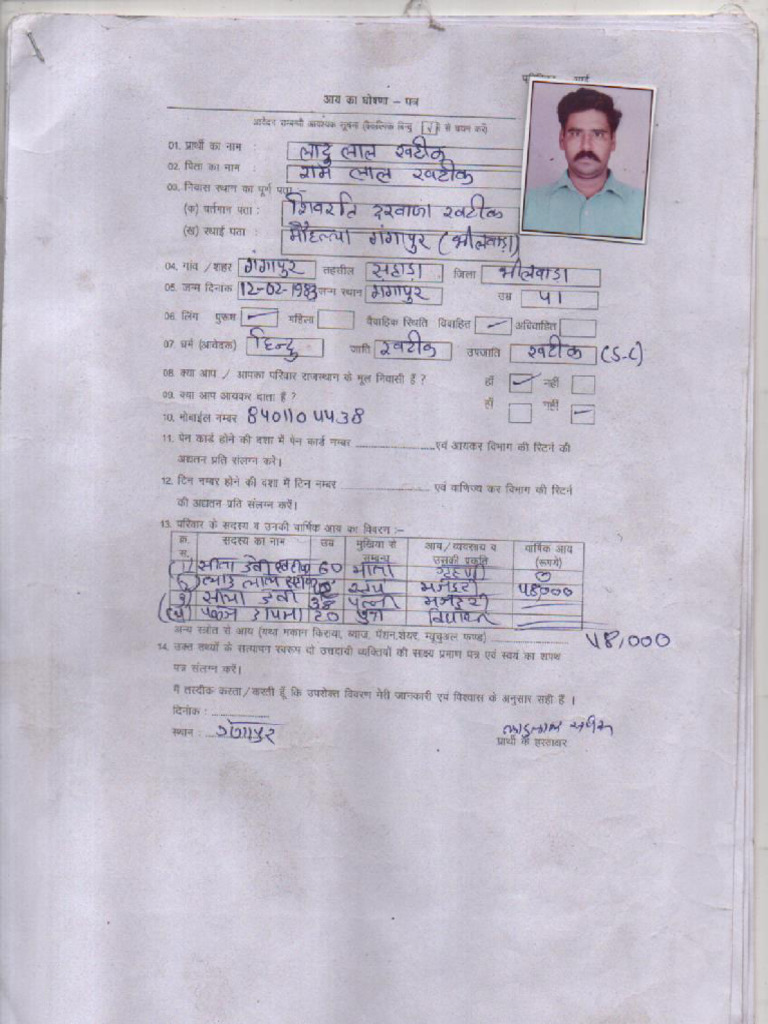 आय का घोषणा – पत्र
आवेदन सम्बन्धी आवश्यक सूचना (वैकल्पिक बिन्दु [√] से चयन करें)
01. प्रार्थी का नाम : लादु लाल खटीक
02. पिता का नाम : राम लाल खटीक
03. निवास स्थान का पूर्ण पता :–
(क) वर्तमान पता : शिवरति दरवाजा खटीक
(ख) स्थाई पता : मौहल्ला गंगापुर (भीलवाड़ा)
04. गांव / शहर गंगापुर तहसील सहाड़ा जिला भीलवाड़ा
05. जन्म दिनांक 12-02-1983 जन्म स्थान गंगापुर उम्र 41
06. लिंग पुरूष महिला वैवाहिक स्थिति विवाहित अविवाहित
07. धर्म (आवेदक) हिन्दु जाति खटीक उपजाति खटीक (S-C)
08. क्या आप / आपका परिवार राजस्थान के मूल निवासी हैं ? हाँ नहीं
09. क्या आप आयकर दाता हैं ? हाँ नहीं
10. मोबाईल नम्बर 8401104438
11. पेन कार्ड होने की दशा में पेन कार्ड नम्बर .................... एवं आयकर विभाग की रिटर्न की
अद्यतन प्रति संलग्न करें।
12. टिन नम्बर होने की दशा में टिन नम्बर .................... एवं वाणिज्य कर विभाग की रिटर्न
की अद्यतन प्रति संलग्न करें।
13. परिवार के सदस्य व उनकी वार्षिक आय का विवरण :–
क्र. स. सदस्य का नाम उम्र मुखिया से सम्बन्ध आय/व्यवसाय व उसकी प्रकृति वार्षिक आय (रूपये)
सीता देवी खटीक 60 माता गृहणी 0
लादु लाल खटीक मजदुरी 48000
देवी 38 पत्नी मजदुरी
20 पुत्र
अन्य स्त्रोत से आय (यथा मकान किराया, ब्याज, पेंशन,शेयर, म्युचुअल फण्ड) 48,000
14. उक्त तथ्यों के सत्यापन स्वरूप दो उत्तदायी व्यक्तियों की साक्ष्य प्रमाण पत्र एवं स्वयं का शपथ
पत्र संलग्न करें।
मैं तस्दीक करता/करती हूँ कि उपरोक्त विवरण मेरी जानकारी एवं विश्वास के अनुसार सही है ।
दिनांक : ....................
स्थान : गंगापुर
लादुलाल खटीक
प्रार्थी के हस्ताक्षर